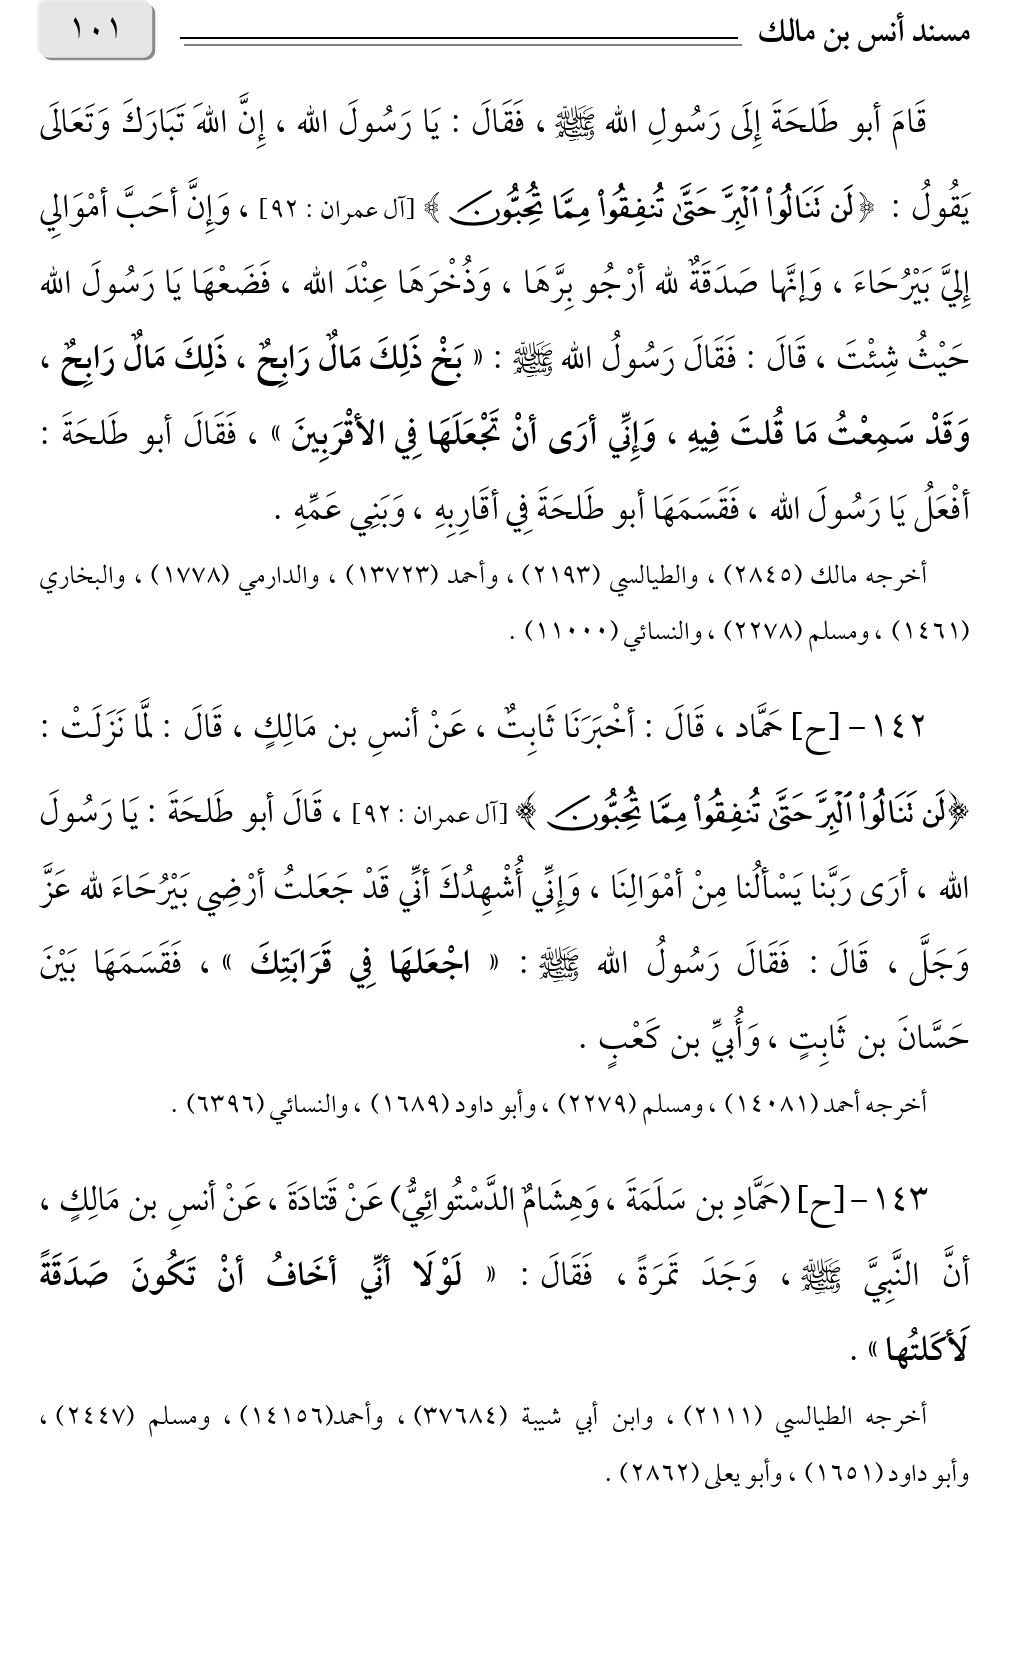 مسند أنس بن مالك ١٠١
قَامَ أبو طَلحَةَ إِلَى رَسُولِ الله ﷺ ، فَقَالَ : يَا رَسُولَ الله ، إِنَّ اللهَ تَبَارَكَ وَتَعَالَى
يَقُولُ : ﴿لَن تَنَالُوا۟ ٱلۡبِرَّ حَتَّىٰ تُنفِقُوا۟ مِمَّا تُحِبُّونَ ﴾ [آل عمران : ٩٢] ، وَإِنَّ أحَبَّ أمْوَالِي
إِليَّ بَيْرُحَاءَ ، وَإنَّها صَدَقَةٌ لله أرْجُو بِرَّهَا ، وَذُخْرَهَا عِنْدَ الله ، فَضَعْهَا يَا رَسُولَ الله
حَيْثُ شِئْتَ ، قَالَ : فَقَالَ رَسُولُ الله ﷺ : « بَخْ ذَلِكَ مَالٌ رَابِحٌ ، ذَلِكَ مَالٌ رَابِحٌ ،
وَقَدْ سَمِعْتُ مَا قُلتَ فِيهِ ، وَإِنِّي أرَى أنْ تَجْعَلَهَا فِي الأقْرَبِينَ » ، فَقَالَ أبو طَلحَةَ :
أفْعَلُ يَا رَسُولَ الله ، فَقَسَمَهَا أبو طَلحَةَ فِي أقَارِبِهِ ، وَبَنِي عَمِّهِ .
أخرجه مالك (٢٨٤٥) ، والطيالسي (٢١٩٣) ، وأحمد (١٣٧٢٣) ، والدارمي (١٧٧٨) ، والبخاري
(١٤٦١) ، ومسلم (٢٢٧٨) ، والنسائي (١١٠٠٠) .
١٤٢- [ح] حَمَّاد ، قَالَ : أخْبَرَنَا ثَابِتٌ ، عَنْ أنسِ بن مَالِكٍ ، قَالَ : لمَّا نَزَلَتْ :
﴿لَن تَنَالُوا۟ ٱلۡبِرَّ حَتَّىٰ تُنفِقُوا۟ مِمَّا تُحِبُّونَ ﴾ [آل عمران : ٩٢] ، قَالَ أبو طَلحَةَ : يَا رَسُولَ
الله ، أرَى رَبَّنا يَسْألُنا مِنْ أمْوَالِنَا ، وَإِنِّي أُشْهِدُكَ أنِّي قَدْ جَعَلتُ أرْضِي بَيْرُحَاءَ لله عَزَّ
وَجَلَّ ، قَالَ : فَقَالَ رَسُولُ الله ﷺ : « اجْعَلهَا فِي قَرَابَتِكَ » ، فَقَسَمَهَا بَيْنَ
حَسَّانَ بن ثَابِتٍ ، وَأُبيِّ بن كَعْبٍ .
أخرجه أحمد (١٤٠٨١) ، ومسلم (٢٢٧٩) ، وأبو داود (١٦٨٩) ، والنسائي (٦٣٩٦) .
١٤٣- [ح] (حَمَّادِ بن سَلَمَةَ ، وَهِشَامٌ الدَّسْتُوائِيُّ) عَنْ قَتادَةَ ، عَنْ أنسِ بن مَالِكٍ ،
أنَّ النَّبِيَّ ﷺ ، وَجَدَ تَمرَةً ، فَقَالَ : « لَوْلَا أنِّي أخَافُ أنْ تَكُونَ صَدَقَةً
لَأكَلتُها » .
أخرجه الطيالسي (٢١١١) ، وابن أبي شيبة (٣٧٦٨٤) ، وأحمد(١٤١٥٦) ، ومسلم (٢٤٤٧) ،
وأبو داود (١٦٥١) ، وأبو يعلى (٢٨٦٢) .